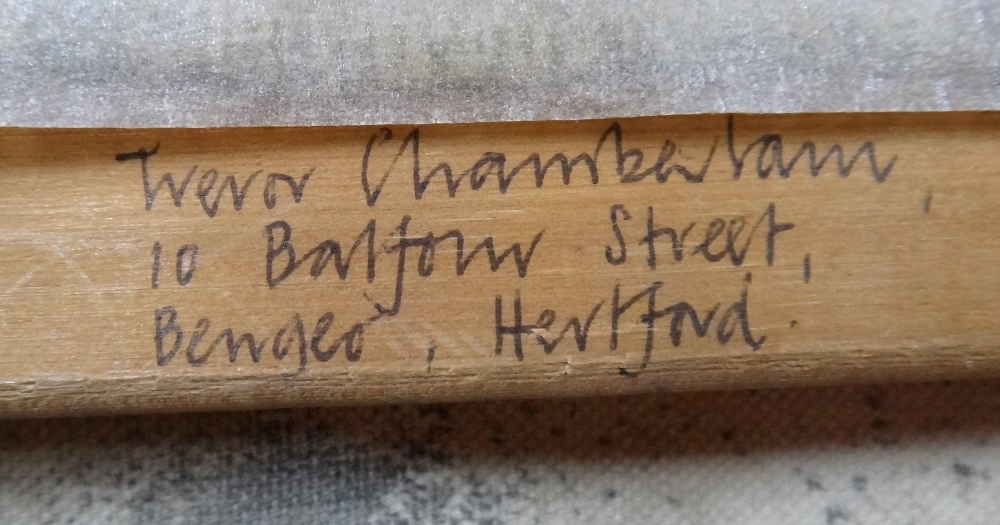 Trevor Chamberlain,
10 Balfour Street,
Bengeo, Hertford.